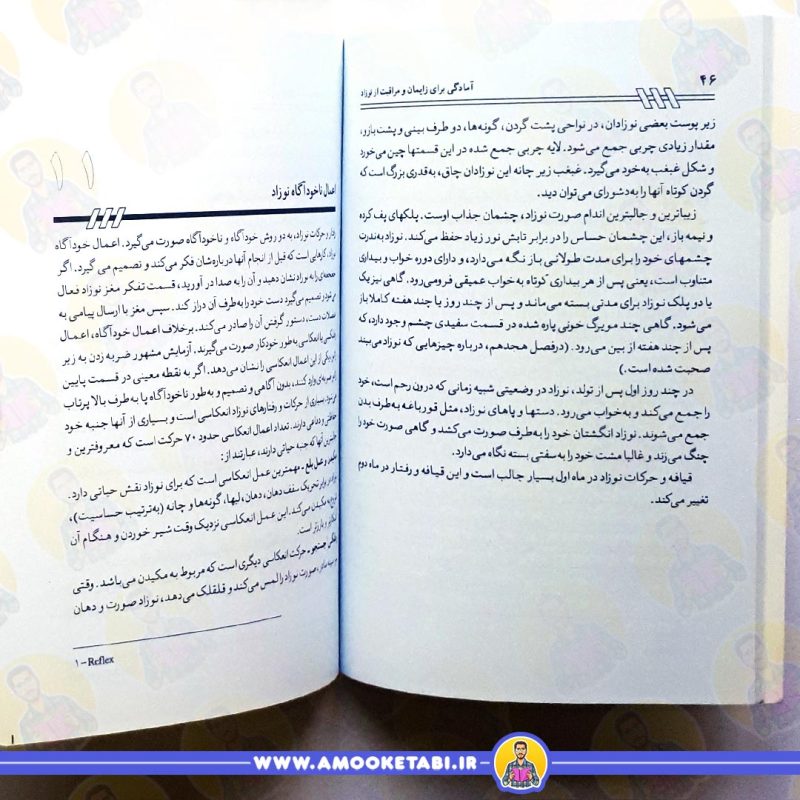 ۴۶
آمادگی برای زایمان و مراقبت از نوزاد
زیر پوست بعضی نوزادان، در نواحی پشت گردن، گونه‌ها، دو طرف بینی و پشت بازو،
مقدار زیادی چربی جمع می‌شود. لایه چربی جمع شده در این قسمتها چین می‌خورد
و شکل غبغب به‌خود می‌گیرد. غبغب زیر چانه این نوزادان چاق، به‌قدری بزرگ است که
گردن کوتاه آنها را به‌دشواری می‌توان دید.
زیباترین و جالبترین اندام صورت نوزاد، چشمان جذاب اوست. پلکهای پف کرده
و نیمه باز، این چشمان حساس را در برابر تابش نور زیاد حفظ می‌کند. نوزاد به‌ندرت
چشمهای خود را برای مدت طولانی باز نگه می‌دارد، و دارای دوره خواب و بیداری
متناوب است، یعنی پس از هر بیداری کوتاه به خواب عمیقی فرومی‌رود. گاهی نیز یک
یا دو پلک نوزاد برای مدتی بسته می‌ماند و پس از چند روز یا چند هفته کاملا باز
می‌شود. گاهی چند مویرگ خونی پاره شده در قسمت سفیدی چشم وجود دارد، که
پس از چند هفته از بین می‌رود. (درفصل هجدهم، درباره چیزهایی که نوزاد می‌بیند
صحبت شده است.)
در چند روز اول پس از تولد، نوزاد در وضعیتی شبیه زمانی که درون رحم است، خود
را جمع می‌کند و به‌خواب می‌رود. دستها و پاهای نوزاد، مثل قورباغه به‌طرف بدن
جمع می‌شوند. نوزاد انگشتان خود را به‌طرف صورت می‌کشد و گاهی صورت خود را
چنگ می‌زند و غالبا مشت خود را به‌سفتی بسته نگاه می‌دارد.
قیافه و حرکات نوزاد در ماه اول بسیار جالب است و این قیافه و رفتار در ماه دوم
تغییر می‌کند.
۱۱
اعمال ناخودآگاه نوزاد
رفتار و حرکات نوزاد، به دو روش خودآگاه و ناخودآگاه صورت می‌گیرد. اعمال خودآگاه
نوزاد، کارهایی است که قبل از انجام آنها درباره‌شان فکر می‌کند و تصمیم می گیرد. اگر
جغجغه‌ای را به نوزاد نشان دهید و آن را به صدا در آورید، قسمت تفکر مغز نوزاد فعال
می‌شود و تصمیم می‌گیرد دست خود را به‌طرف آن دراز کند. سپس مغز با ارسال پیامی به
عضلات دست، دستور گرفتن آن را صادر می‌کند. برخلاف اعمال خودآگاه، اعمال
انعکاسی به‌طور خودکار صورت می‌گیرند. آزمایش مشهور ضربه زدن به زیر
زانو یکی از این اعمال انعکاسی را نشان می‌دهد. اگر به نقطه معینی در قسمت پایین
زانو ضربه‌ای وارد کنند، بدون آگاهی و تصمیم و به‌طور ناخودآگاه پا به‌طرف بالا پرتاب
می‌شود. بسیاری از حرکات و رفتارهای نوزاد انعکاسی است و بسیاری از آنها جنبه خود
حفاظتی و دفاعی دارند. تعداد اعمال انعکاسی حدود ۷۰ حرکت است که معروفترین و
آنها که جنبه حیاتی دارند، عبارتند از:
و عمل بلع ـ مهمترین عمل انعکاسی است که برای نوزاد نقش حیاتی دارد.
نوزاد در برابر تحریک سقف دهان، دهان، لبها، گونه‌ها و چانه (به‌ترتیب حساسیت)،
شروع به مکیدن می‌کند. این عمل انعکاسی نزدیک وقت شیر خوردن و هنگام آن
و بارزتر است.
جستجو ـ حرکت انعکاسی دیگری است که مربوط به مکیدن می‌باشد. وقتی
صورت نوزاد را لمس می‌کند و قلقلک می‌دهد، نوزاد صورت و دهان
۱ – Reflex
WWW.AMOOKETABI.IR